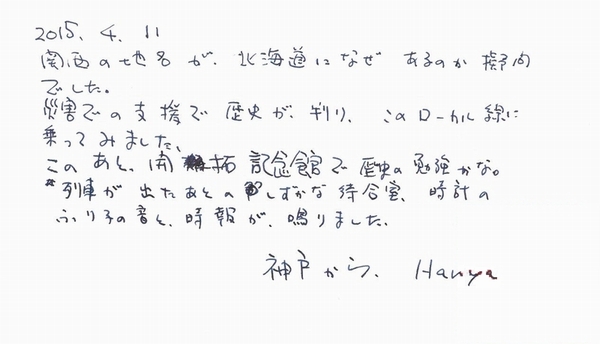 2015. 4. 11
関西の地名が、北海道になぜ あるのか 疑問
でした。
災害での支援で 歴史が、判り、このローカル線に
乗ってみました、
このあと、開拓記念館で歴史の勉強かな。
列車が 出たあとの しずかな 待合室、時計の
ふり子の音と、時報が、鳴りました。
神戸から、 Hanya